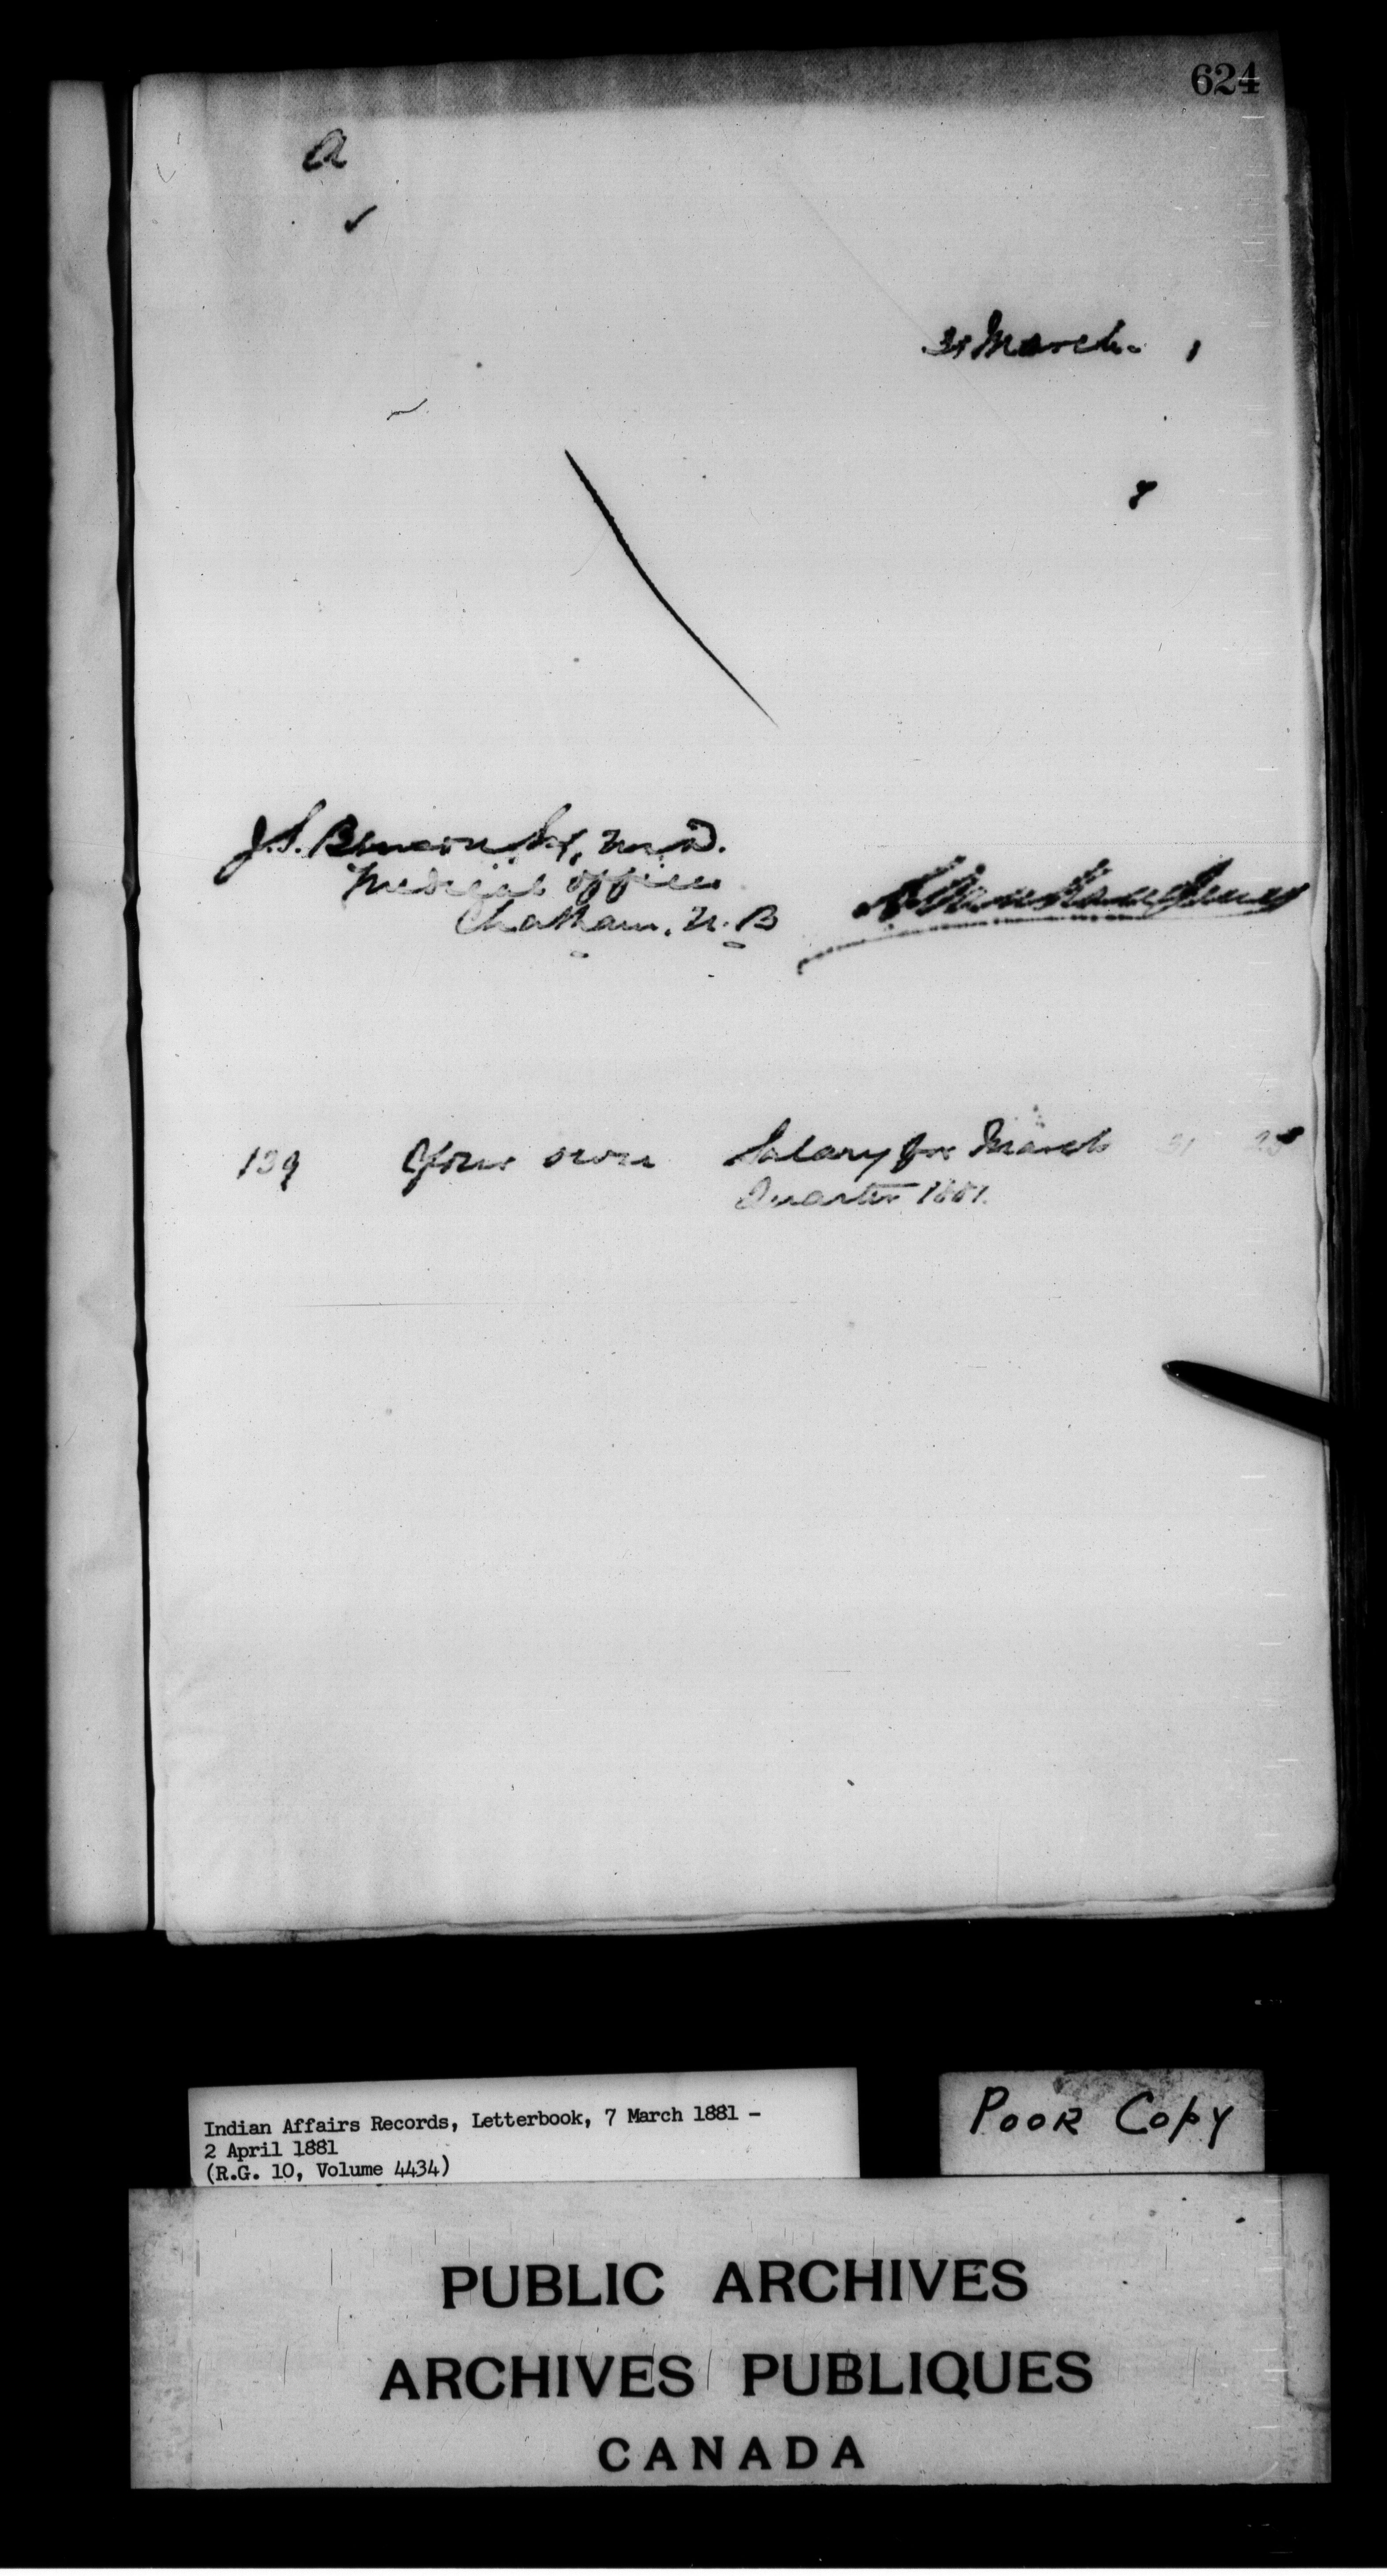 624
a
31 March. 1
8
J. S. Benson Esq, M.D.
Medical Officer
Chatham. N.B
139 Your own Salary for March 31 25
Quarter 1881.
Indian Affairs Records, Letterbook, 7 March 1881 -
2 April 1881
(R.G. 10, Volume 4434)
Poor Copy
PUBLIC ARCHIVES
ARCHIVES PUBLIQUES
CANADA